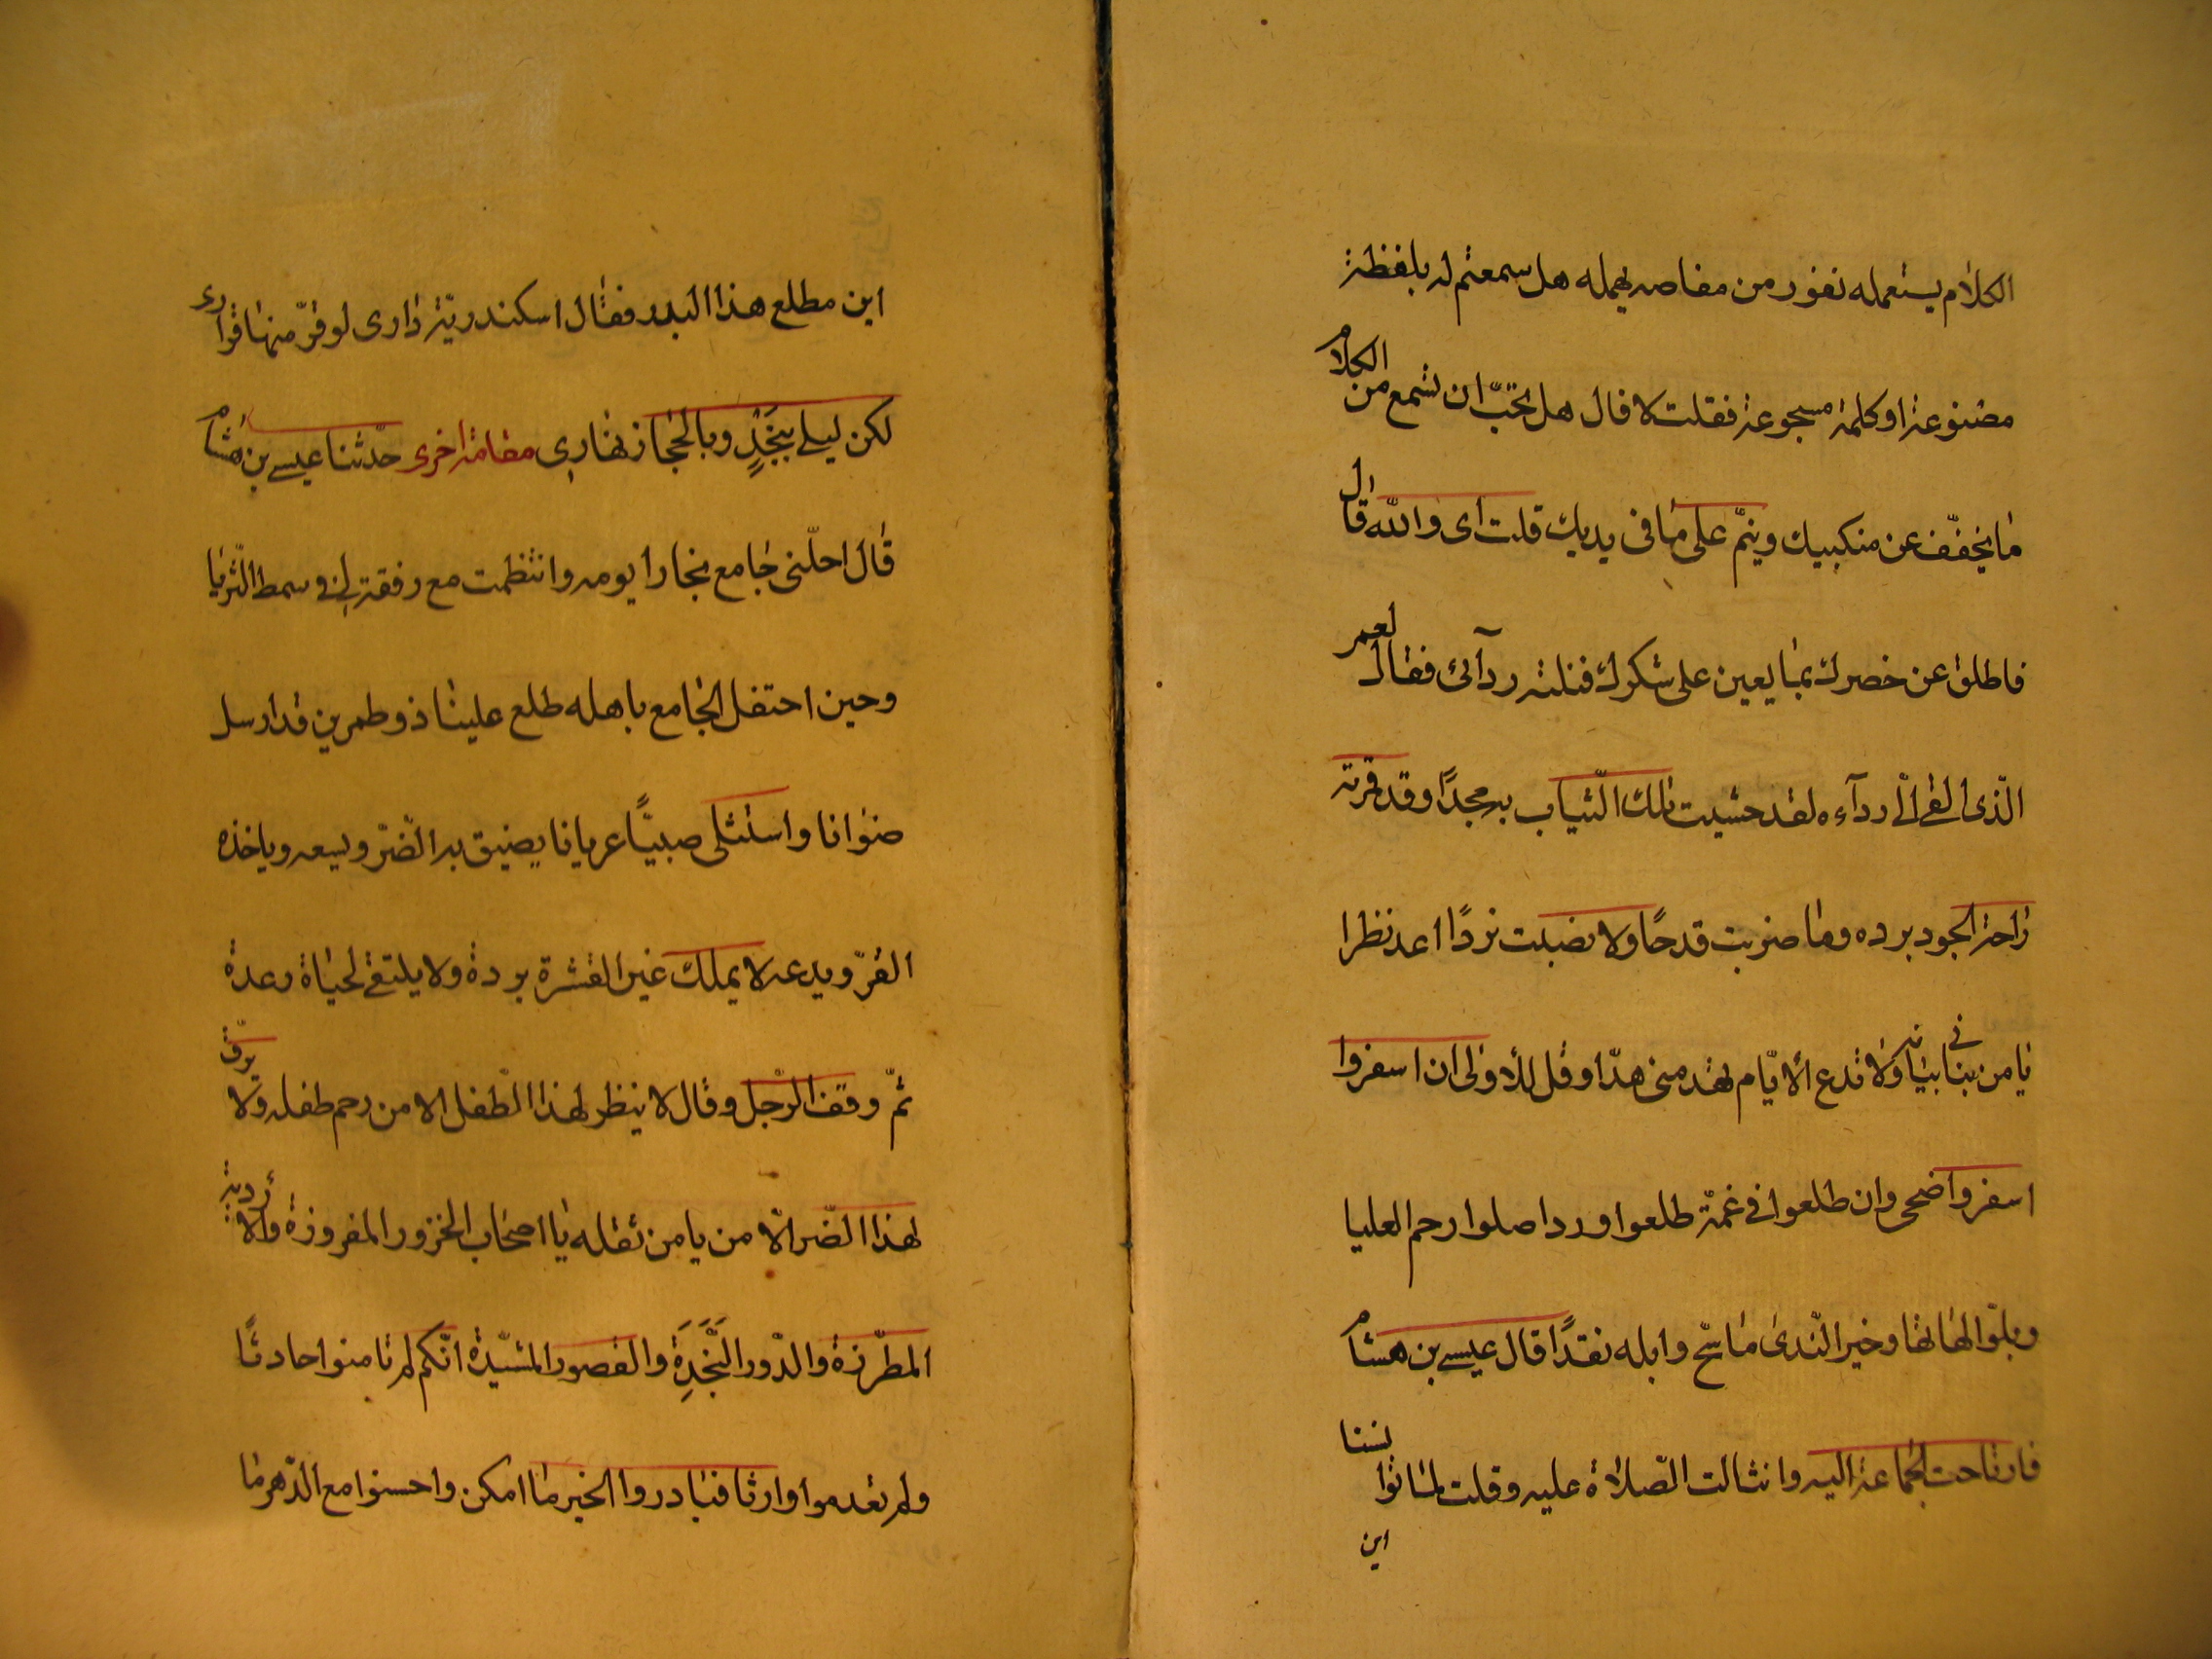 الكلام يستعمله نفور من مفاصه يهمله هل سمعتم له بلفظة
مصنوعة او كلمة مسجوعة فقلت لا قال هل تحبّ ان تسمع من الكلام
ما يخفّف عن منكبيك وينمّ على ما فى يديك قلت اى والله قال
فاطلق عن خصرك بما يعين على شكرك فنلته ردآئى فقال لعمر
الّذى القى الّى ردآءه لقد حشيت تلك الثّياب به مجدًا وقد قرته
راحة الجود برده وما ضربت قدحًا ولا نصبت نردًا اعد نظرا
يا من بنا بيتا فى ولا تدع الايّام تهدمنى هدّا وقل للأولى ان اسفروا
اسفروا ضحى وان طلعوا فى غمّة طلعوا وردا صلوا رحم العليا
وبلّوا لهاتها وخير النّدى ما سّح وابله نقدًا قال عيسى بن هشام
فارتاحت الجماعة اليه وانثالت الصّلاة عليه وقلت لما تؤانسنا
اين
اين مطلع هذا البدر فقال اسكندريّة دارى لو قرّ منها قرارى
لكن ليلى بنَجْدٍ وبالحجاز نهارى مقامة اخرى حدّثنا عيسى بن هشام
قال احلّنى جامع بخارا يومه وانتظمت مع رفقة لى فى سمط الثّريّا
وحين احتفل الجامع باهله طلع علينا ذو طمرين قد ارسل
صنوانا واستتلى صبيًّا عريانا يضيق به الضّرّ ويسعه وياخذه
القرّ ويدعه لا يملك غير القشرة بردة ولا يلتقى لحياة رعدة
ثمّ وقف الرّجل وقال لا ينظر لهذا الطّفل الا من رحم طفله ولا يرقّ
لهذا الضّر الّا من يامن ثقله يا اصحاب الخزور المفروزة والاردية
المطرّزة والدّور النَّجَدِةَ والقصور المشيّدة انّكم لم تامنوا حادثًا
ولم تعدموا وارثا فبادروا الخير ما امكن واحسنوا مع الدّهر ما